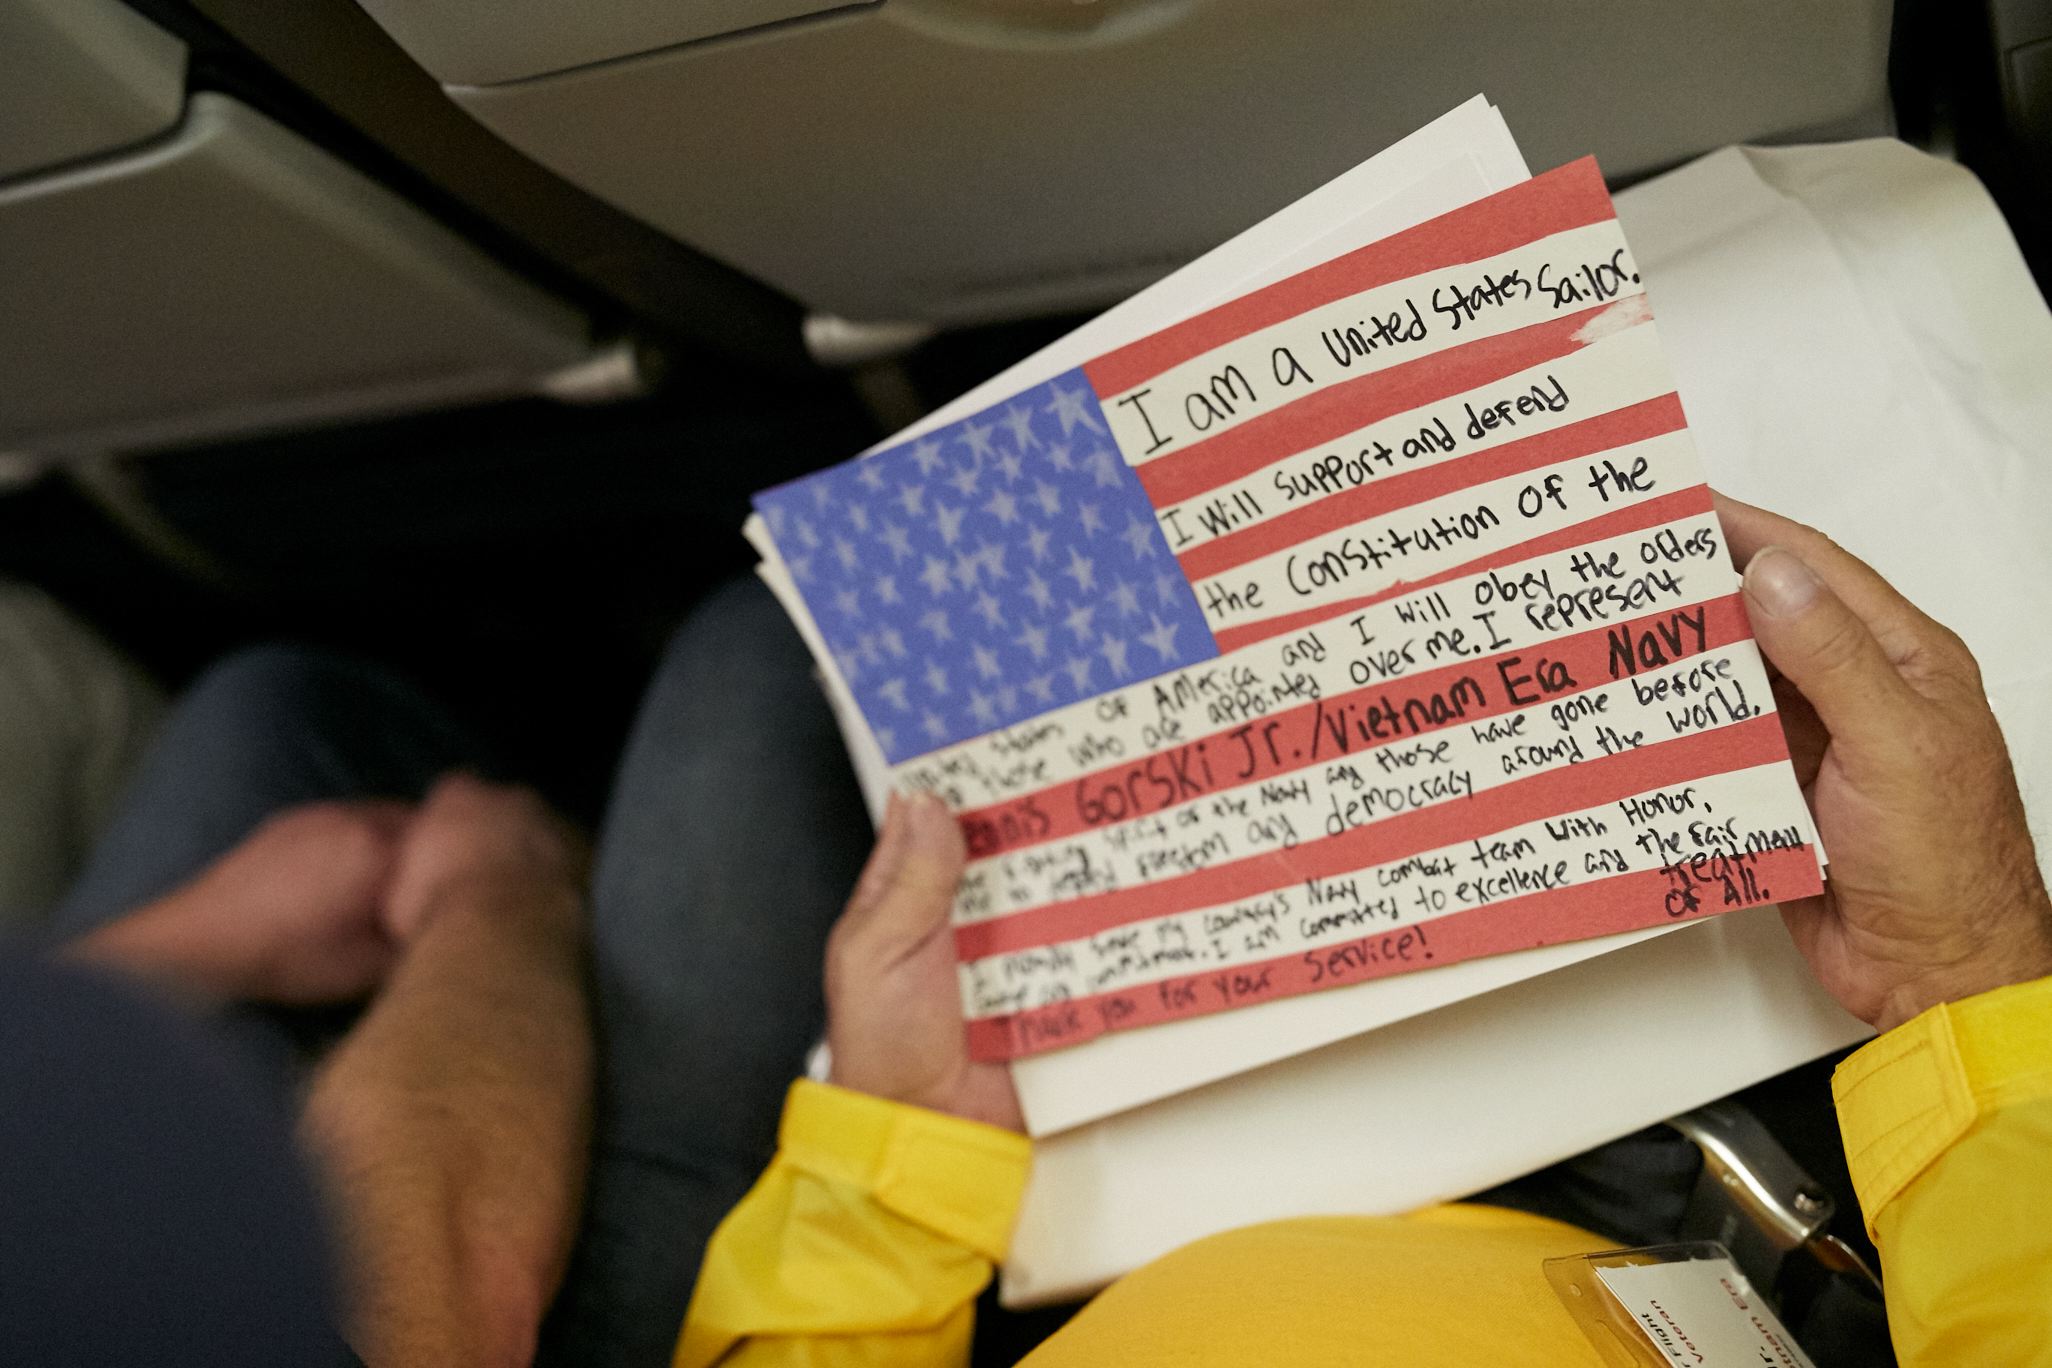 I am a United States Sailor.
I Will support and defend
the Constitution of the
United States of America and I will obey the orders
of those who are appointed over me. I represent
Gorski Jr./Vietnam Era Navy
the fighting spirit of the Navy and those have gone before
me to defend freedom and democracy around the world.
I proudly serve my country's Navy combat team with Honor,
Courage and Commitment. I am committed to excellence and the fair
treatment
of All.
Thank you for your Service!
Flight
Veteran
Era